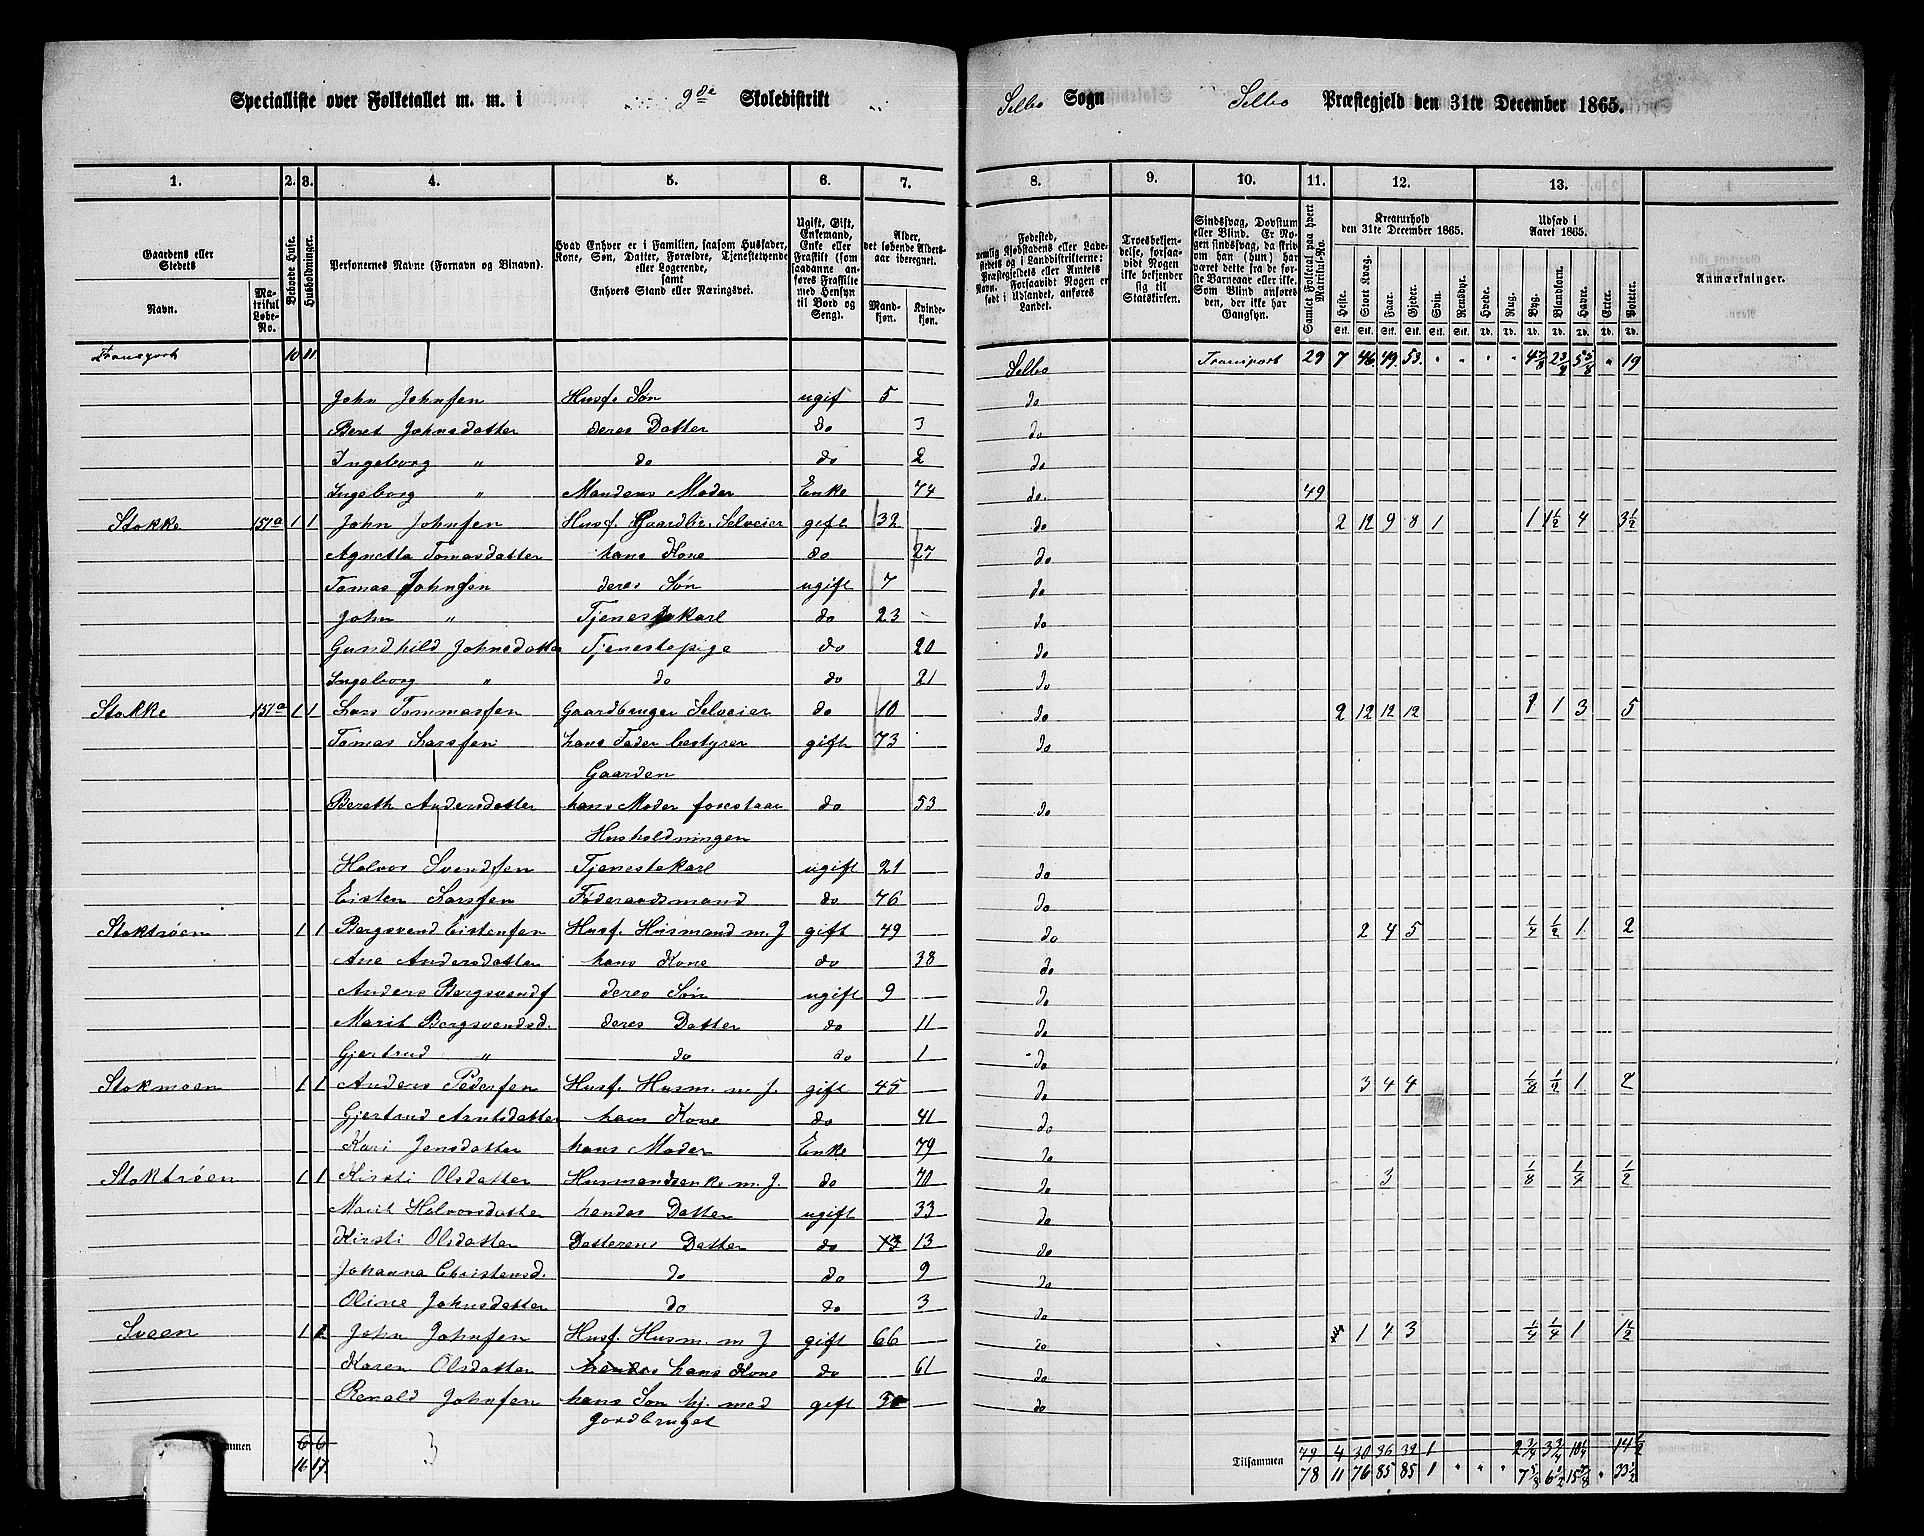 Specialliste over Folketallet m. m. i 9de Skoledistrikt
Selbo Sogn Selbo Præstegjeld den 31te December 1865.
1. 2. 3. 4. 5. 6. 7.
8. 9. 10. 11. 12. 13.
Gaardens eller Stedets
Navn.
Matrikul Løbe-No.
Beboede Huse.
Husholdninger.
Personernes Navne (Fornavn og Binavn).
Hvad Enhver er i Familien, saasom Husfader, Kone, Søn, Datter, Forældre, Tjenestetyende eller Logerende, samt Enhvers Stand eller Næringsvei.
Ugift, Gift, Enkemand, Enke eller Fraskilt (som saadanne anføres Fraskilte med Hensyn til Bord og Seng).
Alder, det løbende Aldersaar iberegnet.
Mandkjøn. Kvindekjøn.
Fødested, nemlig Kjøbstadens eller Ladestedets og i Landdistrikterne: Præstegjeldets eller Amtets Navn. Forsaavidt Nogen er født i Udlandet, anføres Landet.
Troesbekjendelse, forsaavidt Nogen ikke bekjender sig til Statskirken.
Sindssvag, Døvstum eller Blind. Er Nogen sindssvag, da skriv om han (hun) har været dette fra de første Barneaar eller ikke. Som Blind anføres den, der ikke har Gangsyn.
Samlet Folketal paa hvert Matrikul-No.
Kreaturhold den 31te December 1865.
Heste. Stort Kvæg. Faar. Gjeder. Svin. Rensdyr.
Udsæd i Aaret 1865.
Hvede. Rug. Byg. Blandkorn. Havre. Erter. Poteter.
Anmærkninger.
Transport 10 11 Selbo Transport 29 7 46 49 53 " " " " 4 7/8 2 3/4 5 5/8 " 19
John Johnsen Husf. Søn ugif 5 do
Beret Johnsdatter deres Datter do 3 do
Ingeborg " do do 2 do
Ingeborg " Mandens Moder Enke 74 do 49
Stokke 157a 1 1 John Johnsen Husf. Gaardbr. Selveier gift 32 do 2 12 9 8 1 1 1 1/2 4 3 1/2
Agnetta Tomasdatter hans Kone do 27 do
Tomas Johnsen deres Søn ugift 7 do
John " Tjenestekarl do 23 do
Gundhild Johnsdatter Tjenestepige do 20 do
Ingeborg " do do 21 do
Stokke 157a 1 1 Lars Tommassen Gaardbruger Selveier do 10 do 2 12 12 12 1 1 3 5
Tomas Larssen hans Fader bestyrer gift 73 do
Gaarden
Bereth Andersdatter hans Moder forestaar do 53 do
Husholdningen
Halvor Svendsen Tjenestekarl ugift 21 do
Eisten Larssen Føderaadsmand do 76 do
Stoktrøen 1 1 Bergsvend Eistensen Husf. Husmand m. J gift 49 do 2 4 5 1/4 1/2 1 2
Ane Andersdatter hans Kone do 38 do
Anders Bergsvends deres Søn ugift 9 do
Marit Bergsvendsd. deres Datter do 11 do
Gjertrud " do do 1 do
Stokmoen 1 1 Anders Pedersen Husf. Husm. m. J. gift 45 do 3 4 4 1/8 1/2 1 2
Gjertrud Arntsdatter hans Kone do 41 do
Kari Jensdatter hans Moder Enke 79 do
Stoktrøen 1 1 Kirsti Olsdatter Husmandsenke m. J. do 70 do 3 1/8 1/4 1/2
Marit Halvorsdatter hendes Datter ugift 33 do
Kirsti Olsdatter Datterens Datter do 13 do
Johanna Christensd. do do 9 do
Oline Johnsdatter do do 3 do
Sveen 1 1 John Johnsen Husf. Husm. m J gift 66 do 1 4 3 1/4 1/4 1 1 1/2
Karen Olsdatter hendes hans Kone do 61 do
Renald Johnsen hans Søn hj. med gift 30 do
Gardbruget
Tilsammen 6 6 49 4 30 36 32 1 2 3/4 3 3/4 10 1/4 14 1/2
16 17 3 78 11 76 85 85 1 " " " 7 5/8 6 1/2 15 7/8 " 33 1/2